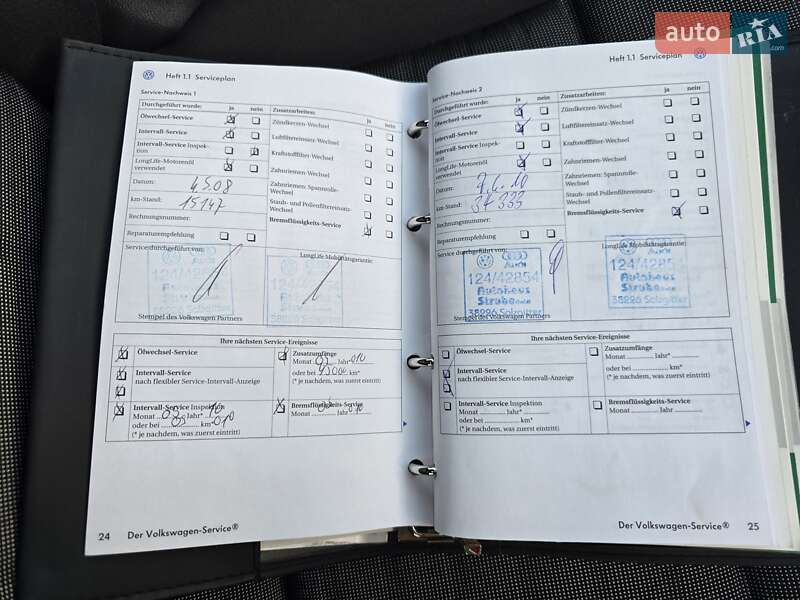 auto RIA.com
Heft 1.1 Serviceplan
Service-Nachweis 1
Durchgeführt wurde: ja nein Zusatzarbeiten: ja nein
Ölwechsel-Service
Zündkerzen-Wechsel
Intervall-Service
Luftfiltereinsatz-Wechsel
Intervall-Service Inspek-
tion
Kraftstofffilter-Wechsel
LongLife-Motorenöl
verwendet
Zahnriemen-Wechsel
Datum: 4.5.08
Zahnriemen: Spannrolle-
Wechsel
km-Stand: 15147
Staub- und Pollenfiltereinsatz-
Wechsel
Rechnungsnummer:
Bremsflüssigkeits-Service
Reparaturempfehlung
Service durchgeführt von:
LongLife Mobilitätsgarantie:
124/42854
Autohaus
Stempel des Volkswagen Partners
Ihre nächsten Service-Ereignisse
Ölwechsel-Service
Zusatzumfänge
Monat 03 Jahr* 010
oder bei 45000 km*
(* je nachdem, was zuerst eintritt)
Intervall-Service
nach flexibler Service-Intervall-Anzeige
Intervall-Service Inspektion
Monat Jahr*
oder bei km*
(* je nachdem, was zuerst eintritt)
Bremsflüssigkeits-Service
Monat 03 Jahr 010
24 Der Volkswagen-Service®
Heft 1.1 Serviceplan
Service-Nachweis 2
Durchgeführt wurde: ja nein Zusatzarbeiten: ja nein
Ölwechsel-Service
Zündkerzen-Wechsel
Intervall-Service
Luftfiltereinsatz-Wechsel
Intervall-Service Inspek-
tion
Kraftstofffilter-Wechsel
LongLife-Motorenöl
verwendet
Zahnriemen-Wechsel
Datum:
Zahnriemen: Spannrolle-
Wechsel
km-Stand:
Staub- und Pollenfiltereinsatz-
Wechsel
Rechnungsnummer:
Bremsflüssigkeits-Service
Reparaturempfehlung
Service durchgeführt von:
LongLife Mobilitätsgarantie:
Audi
124/42854
Autohaus
Strube
38226 Salzgitter
124/42854
Autohaus
Strube
38226 Salzgitter
Stempel des Volkswagen Partners
Ihre nächsten Service-Ereignisse
Ölwechsel-Service
Zusatzumfänge
Monat Jahr*
oder bei km*
(* je nachdem, was zuerst eintritt)
Intervall-Service
nach flexibler Service-Intervall-Anzeige
Intervall-Service Inspektion
Monat Jahr*
oder bei km*
(* je nachdem, was zuerst eintritt)
Bremsflüssigkeits-Service
Monat Jahr
Der Volkswagen-Service® 25